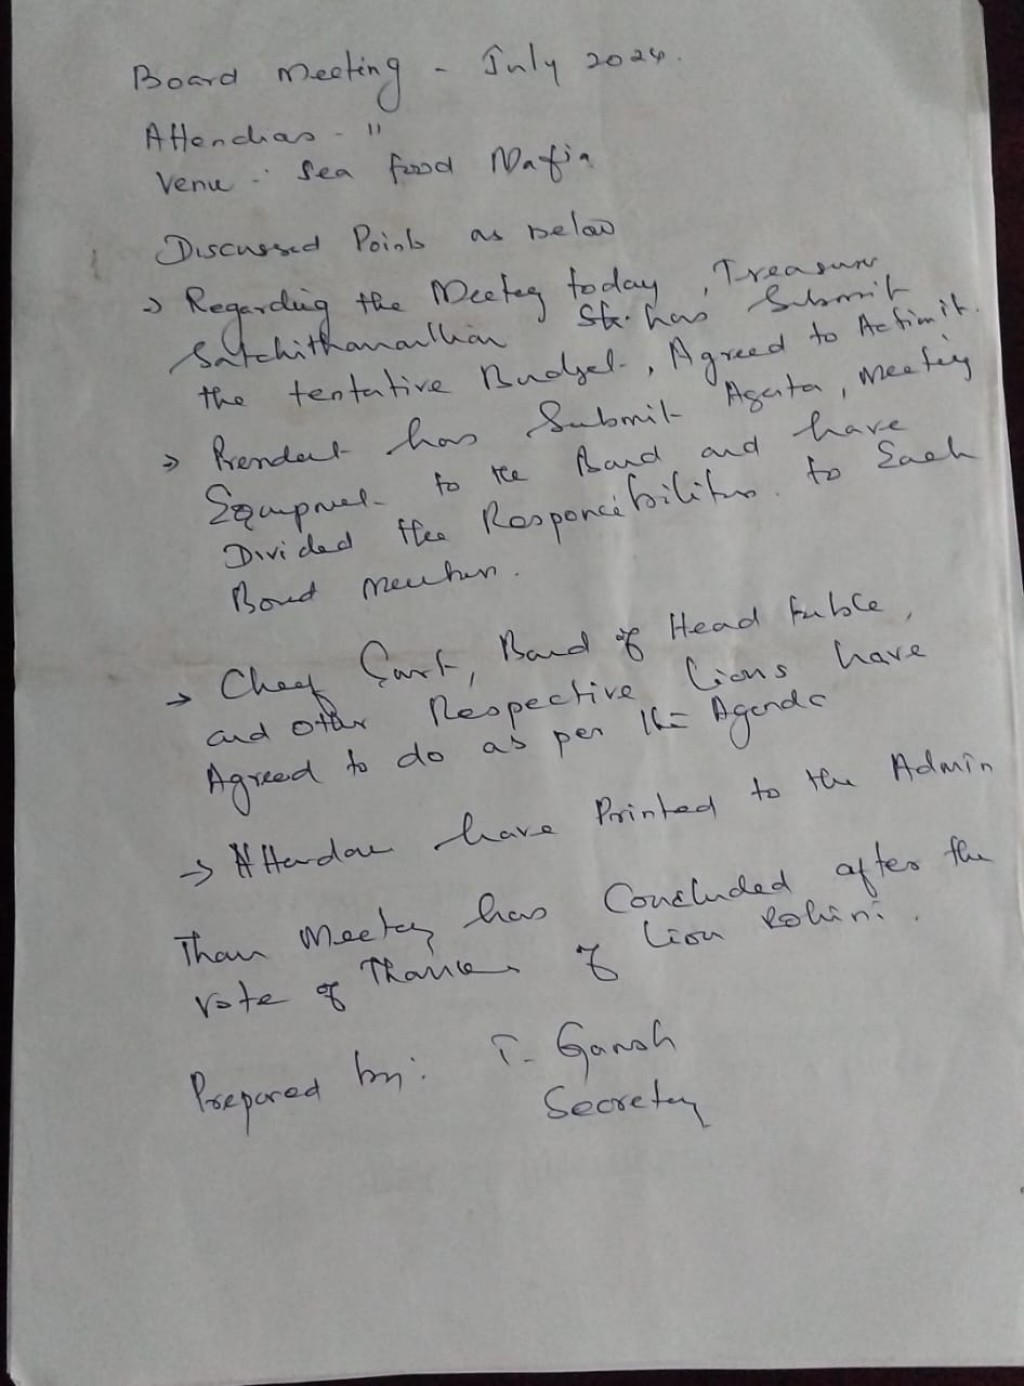 Board Meeting - July 2024.
Attendias - 11
Venu : Sea food Mafia
Discussed Points as below
→ Regarding the Meeteg today, Treasurer
Satchithanandhan has Submit
the tentative Budget, Agreed to
→ has Submit Agenta, Meeting
to the Board and have
Divided the to Each
Board
→ Board of Head
and other Respective Lions have
Agreed to do as per the Agenda
→ have Printed to the Admin
Than Meeteg has Concluded after the
vote of Thanks of Lion Rohini.
Prepared by: T. Gansh
Secretey